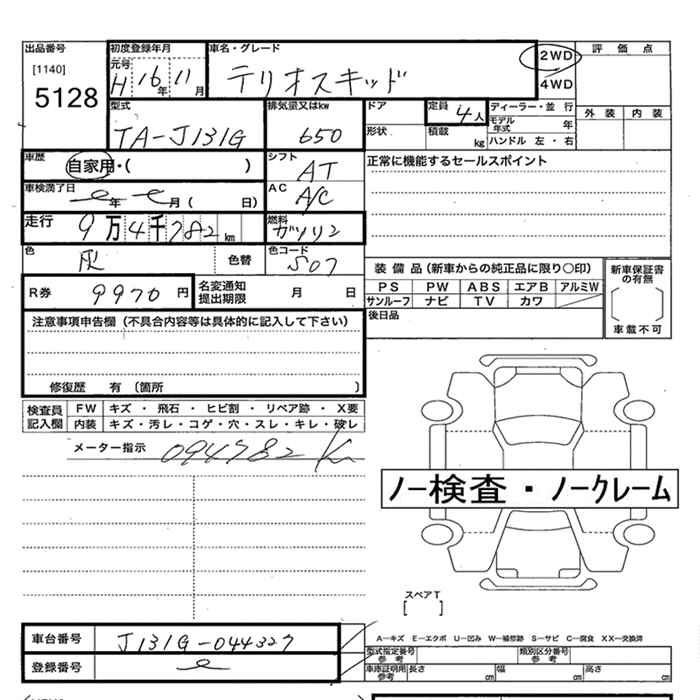 出品番号 初度登録年月 車名・グレード 評価点
[1140] 元号 2WD
5128 H 16年 11月 テリオスキッド 4WD
型式 排気量又はkw ドア 定員 4人 ディーラー・並 行 外装 内装
モデル年式 年
TA-J131G 650 形状 積載 kg ハンドル 左・右
車歴 自家用・( ) シフト AT 正常に機能するセールスポイント
車検満了日 年 月( 日) AC A/C
走行 9万4千782km 燃料 ガソリン
色 灰 色替 色コード S07
装備品(新車からの純正品に限り○印) 新車保証書の有無
R券 9970円 名変通知提出期限 月 日 PS PW ABS エアB アルミW
サンルーフ ナビ TV カワ
注意事項申告欄(不具合内容等は具体的に記入して下さい) 後日品 車載不可
修復歴 有〔箇所 〕
検査員記入欄 FW キズ・飛石・ヒビ割・リペア跡・X要
内装 キズ・汚レ・コゲ・穴・スレ・キレ・破レ
メーター指示 094782 Km
ノー検査・ノークレーム
スペアT
[ ]
車台番号 J131G-044327
A—キズ E—エクボ U—凹み W—補修跡 S—サビ C—腐食 XX—交換済
登録番号
型式指定番号 参考 類別区分番号 参考
車庫証明用 参考 長さ cm 幅 cm 高さ cm